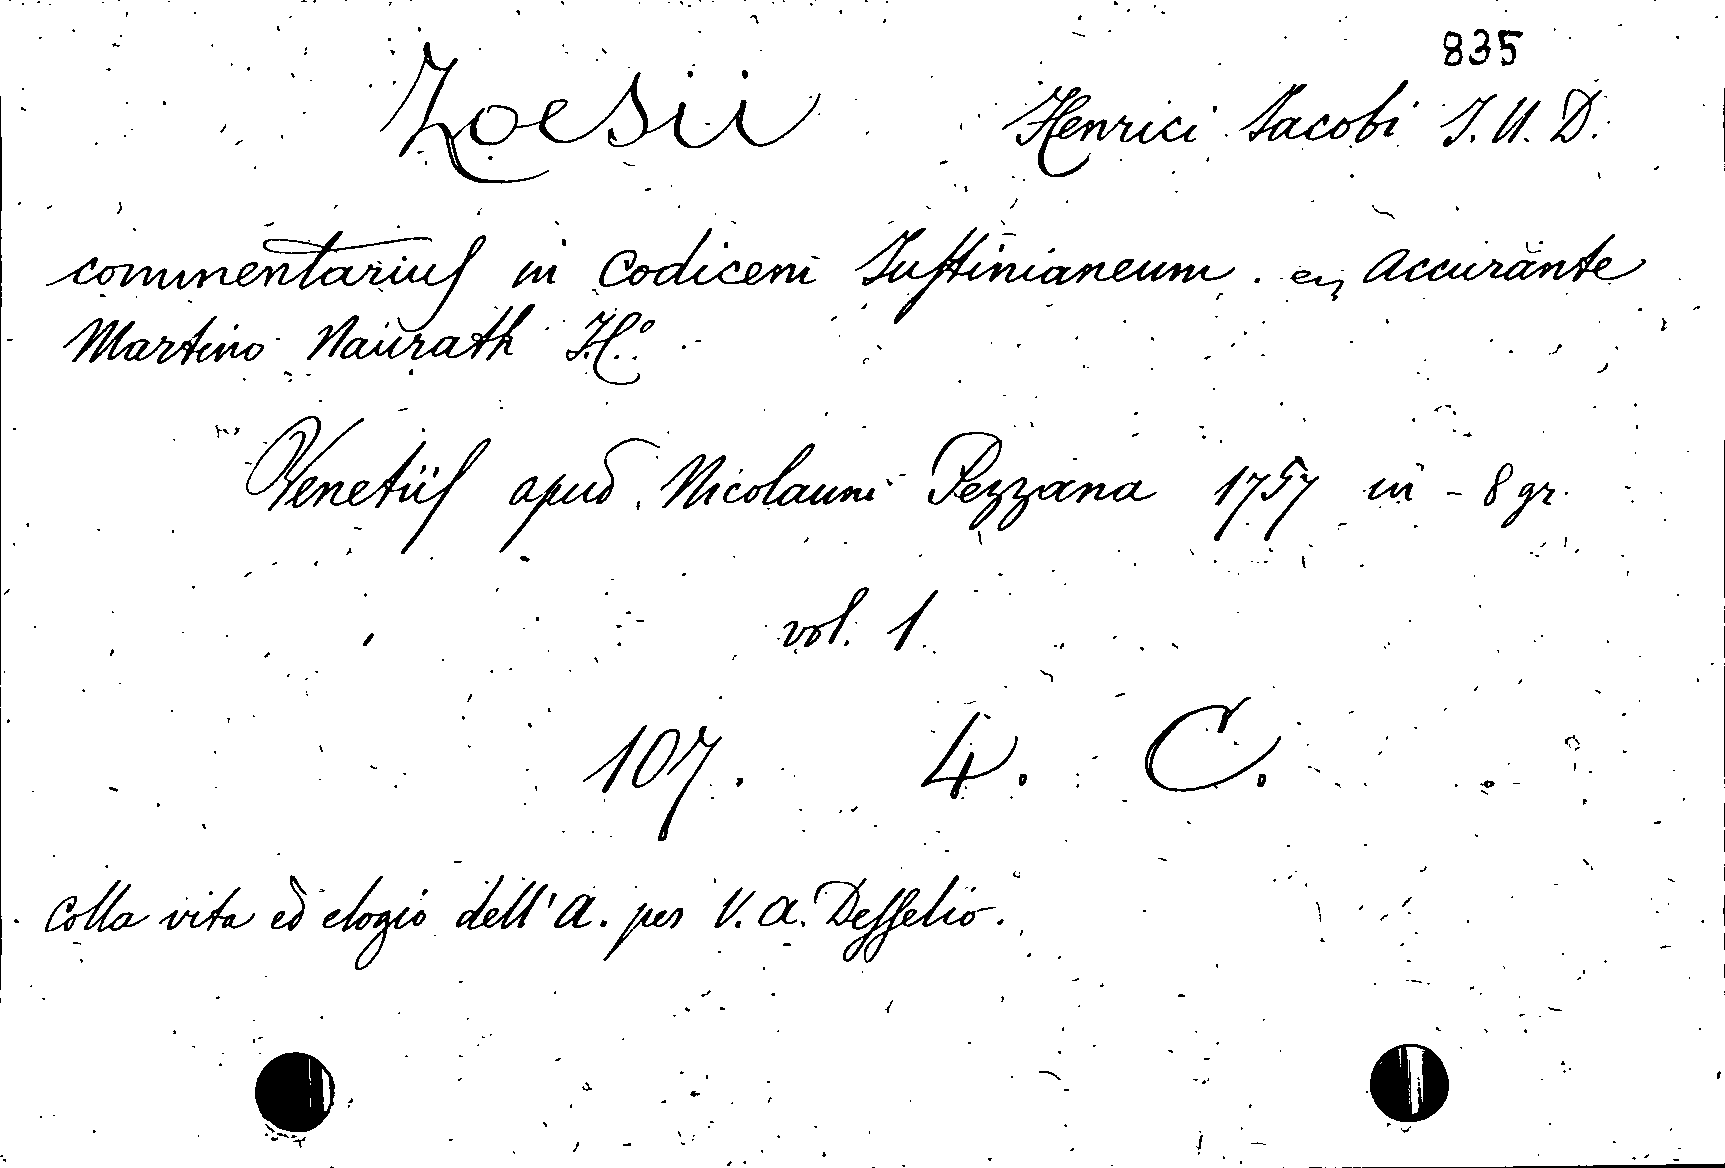 835
Zoesii Henrici Jacobi J. U. D.
commentarius in Codicem Justinianeum. Accurante
Martino Naurath
Venetiis apud Nicolaum Pezzana 1757 in - 8 gr.
vol. 1
107. 4. C.
colla vita ed elogio dell' A. per V. A. Desselio.